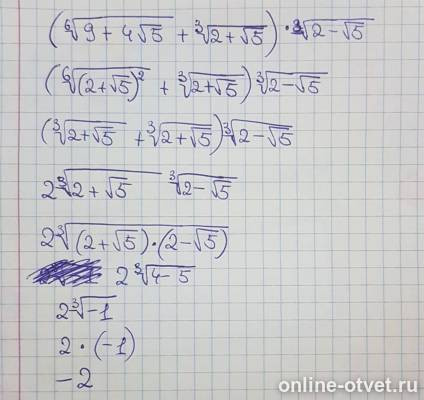 (⁶√(9 + 4√5) + ³√(2 + √5)) · ³√(2 − √5)
(⁶√((2 + √5)²) + ³√(2 + √5)) ³√(2 − √5)
(³√(2 + √5) + ³√(2 + √5)) ³√(2 − √5)
2 ³√(2 + √5) ³√(2 − √5)
2 ³√((2 + √5) · (2 − √5))
2 ³√(4 − 5)
2 ³√(−1)
2 · (−1)
− 2
online-otvet.ru